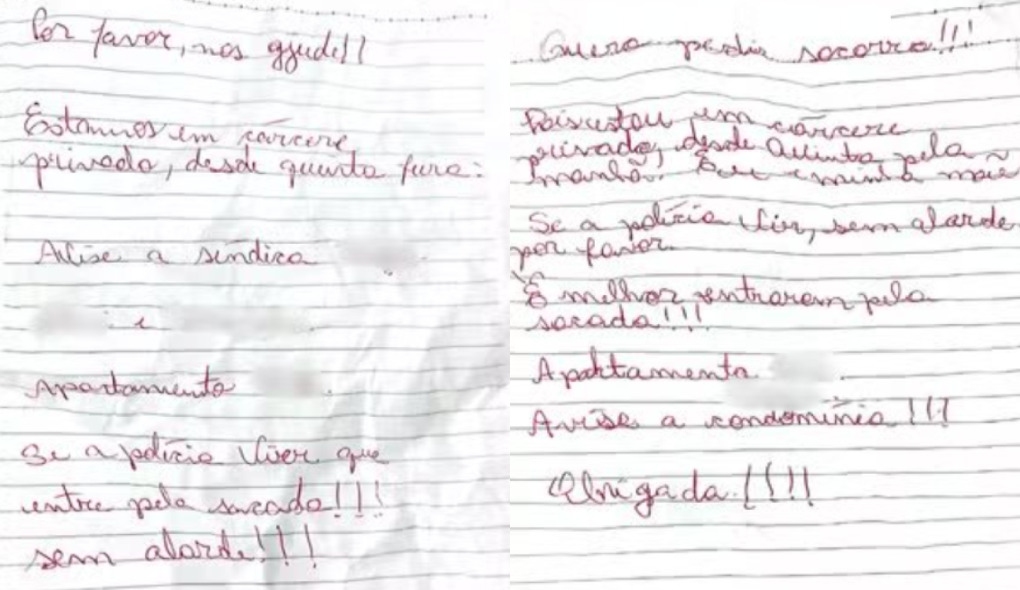 Por favor, nos ajude!!
Estamos em cárcere
privado, desde quinta feira:
Avise a síndica
e
Apartamento
Se a polícia vier que
entre pela sacada!!!
sem alarde!!!
Quero pedir socorro!!!
Pois estou em cárcere
privado, desde Quinta pela
manhã. Eu e minha mãe
Se a polícia vir, sem alarde
por favor.
É melhor entrarem pela
sacada!!!
Apartamento
Avise a condomínio!!!
Obrigada!!!!